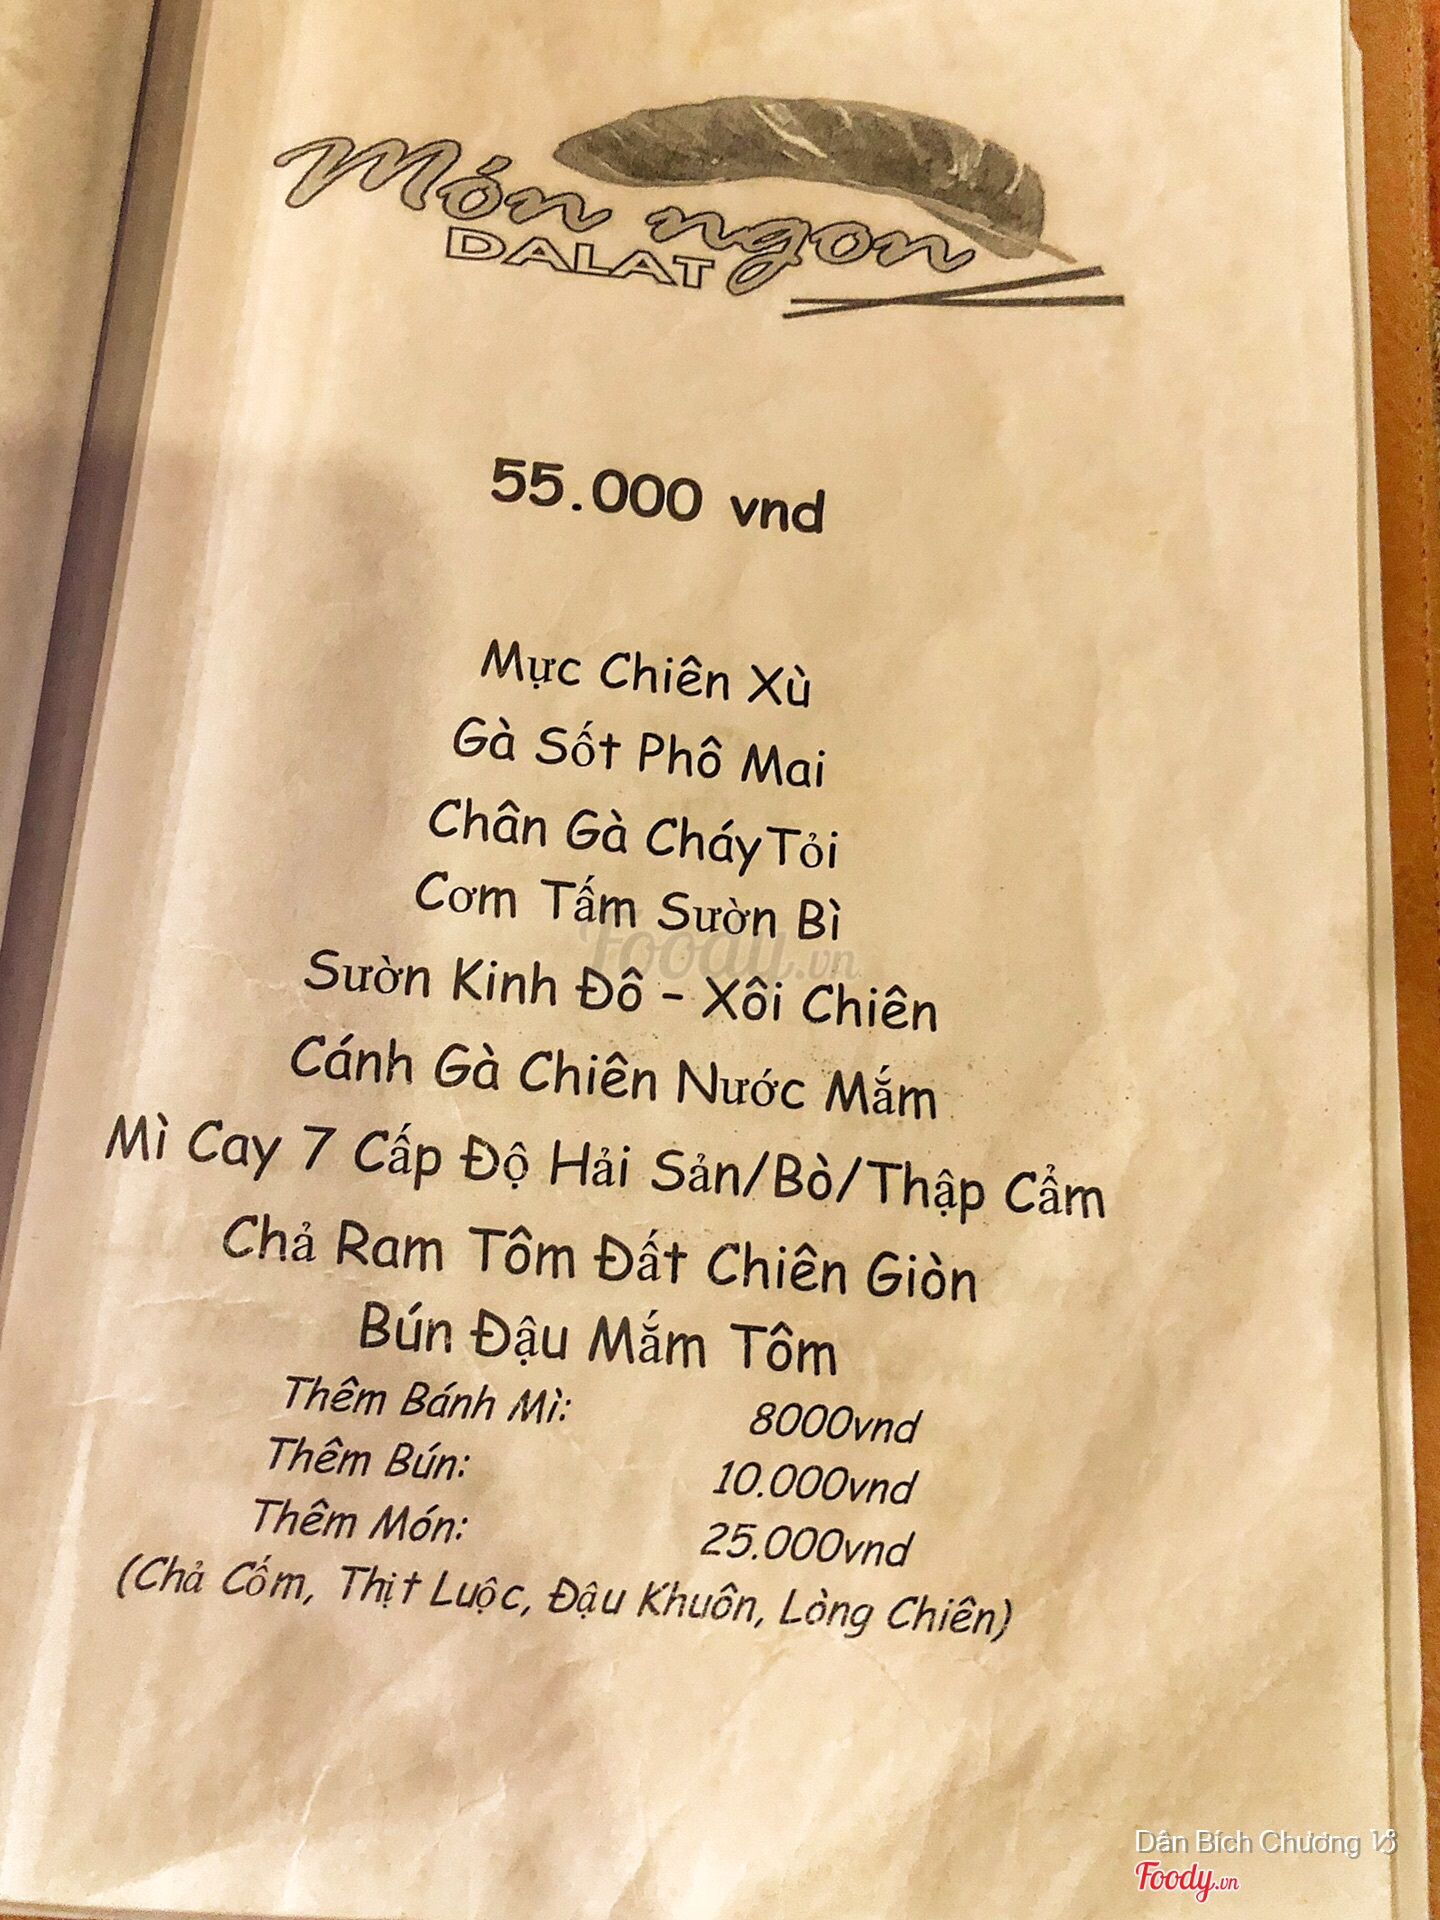 Món ngon
DALAT
55.000 vnd
Mực Chiên Xù
Gà Sốt Phô Mai
Chân Gà CháyTỏi
Cơm Tấm Sườn Bì
Foody.vn
Sườn Kinh Đô - Xôi Chiên
Cánh Gà Chiên Nước Mắm
Mì Cay 7 Cấp Độ Hải Sản/Bò/Thập Cẩm
Chả Ram Tôm Đất Chiên Giòn
Bún Đậu Mắm Tôm
Thêm Bánh Mì: 8000vnd
Thêm Bún: 10.000vnd
Thêm Món: 25.000vnd
(Chả Cốm, Thịt Luộc, Đậu Khuôn, Lòng Chiên)
Dân Bích Chương
Foody.vn